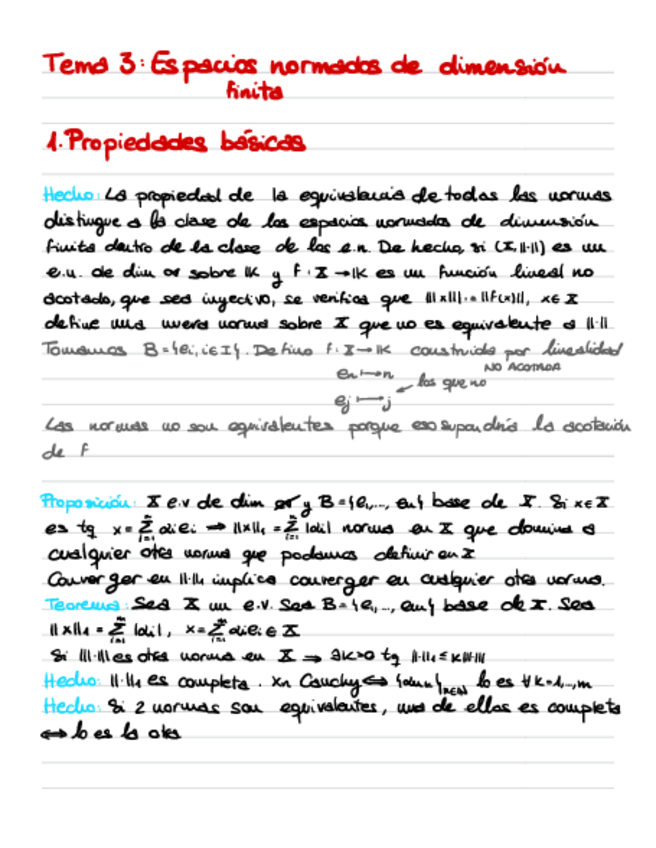 Tema 3: Espacios normados de dimensión
finita
1. Propiedades básicas
Hecho: La propiedad de la equivalencia de todas las normas
distingue a la clase de los espacios normados de dimensión
finita dentro de la clase de los e.n. De hecho, si (X, ||·||) es un
e.n. de dim ∞ sobre IK y f: X → IK es un función lineal no
acotada, que sea inyectiva, se verifica que |||x||| := ||f(x)||, x ∈ X
define una nueva norma sobre X que no es equivalente a ||·||
Tomamos B = {ei, i ∈ I}. Defino f: X → IK construida por linealidad
NO ACOTADA
en ↦ n
ej ↦ j ← los que no
Las normas no son equivalentes porque eso supondría la acotación
de f
Proposición: X e.v de dim y B = {e1,..., en} base de X. Si x ∈ X
es tq x = Σ αiei ⇒ ||x||1 = Σ |αi| norma en X que domina a
cualquier otra norma que podamos definir en X
Converger en ||·||1 implica converger en cualquier otra norma.
Teorema: Sea X un e.v. Sea B = {e1,..., em} base de X. Sea
||x||1 = Σ |αi|, x = Σ αiei ∈ X
Si |||·||| es otra norma en X ⇒ ∃K>0 tq ||·||1 ≤ K|||·|||
Hecho: ||·||1 es completa. xn Cauchy ⇔ {αn,k}n∈N lo es ∀k=1,...,m
Hecho: Si 2 normas son equivalentes, una de ellas es completa
⇔ lo es la otra